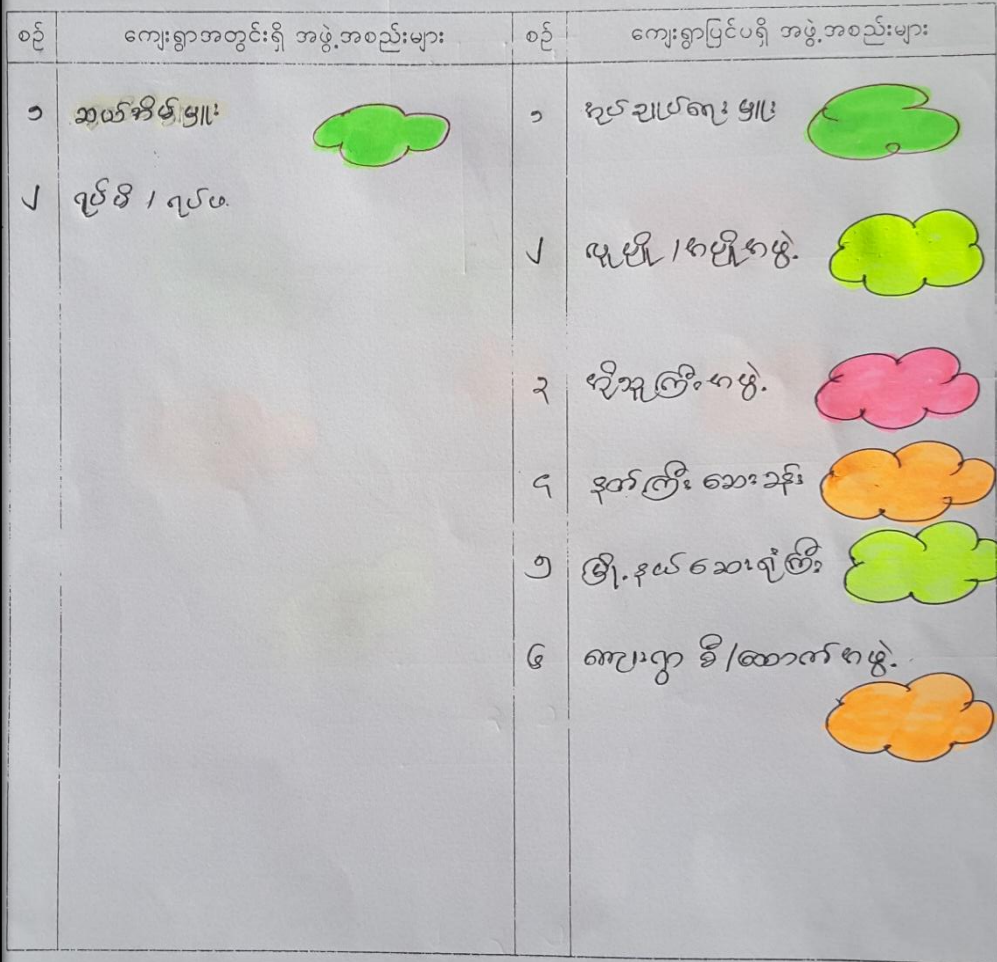 စဉ် ကျေးရွာအတွင်းရှိ အဖွဲ့အစည်းများ စဉ် ကျေးရွာပြင်ပရှိ အဖွဲ့အစည်းများ
၁ ဆယ်အိမ်မှူး ၁ အုပ်ချုပ်ရေးမှူး
၂ ရပ်မိ / ရပ်ဖ
၂ လူပျို / အပျိုအဖွဲ့
၃ အဖွဲ့
၄ နတ်ကြီး ဆေးခန်း
၅ မြို့နယ်ဆေးရုံကြီး
၆ ကျေးရွာ စီ/ထောက်အဖွဲ့